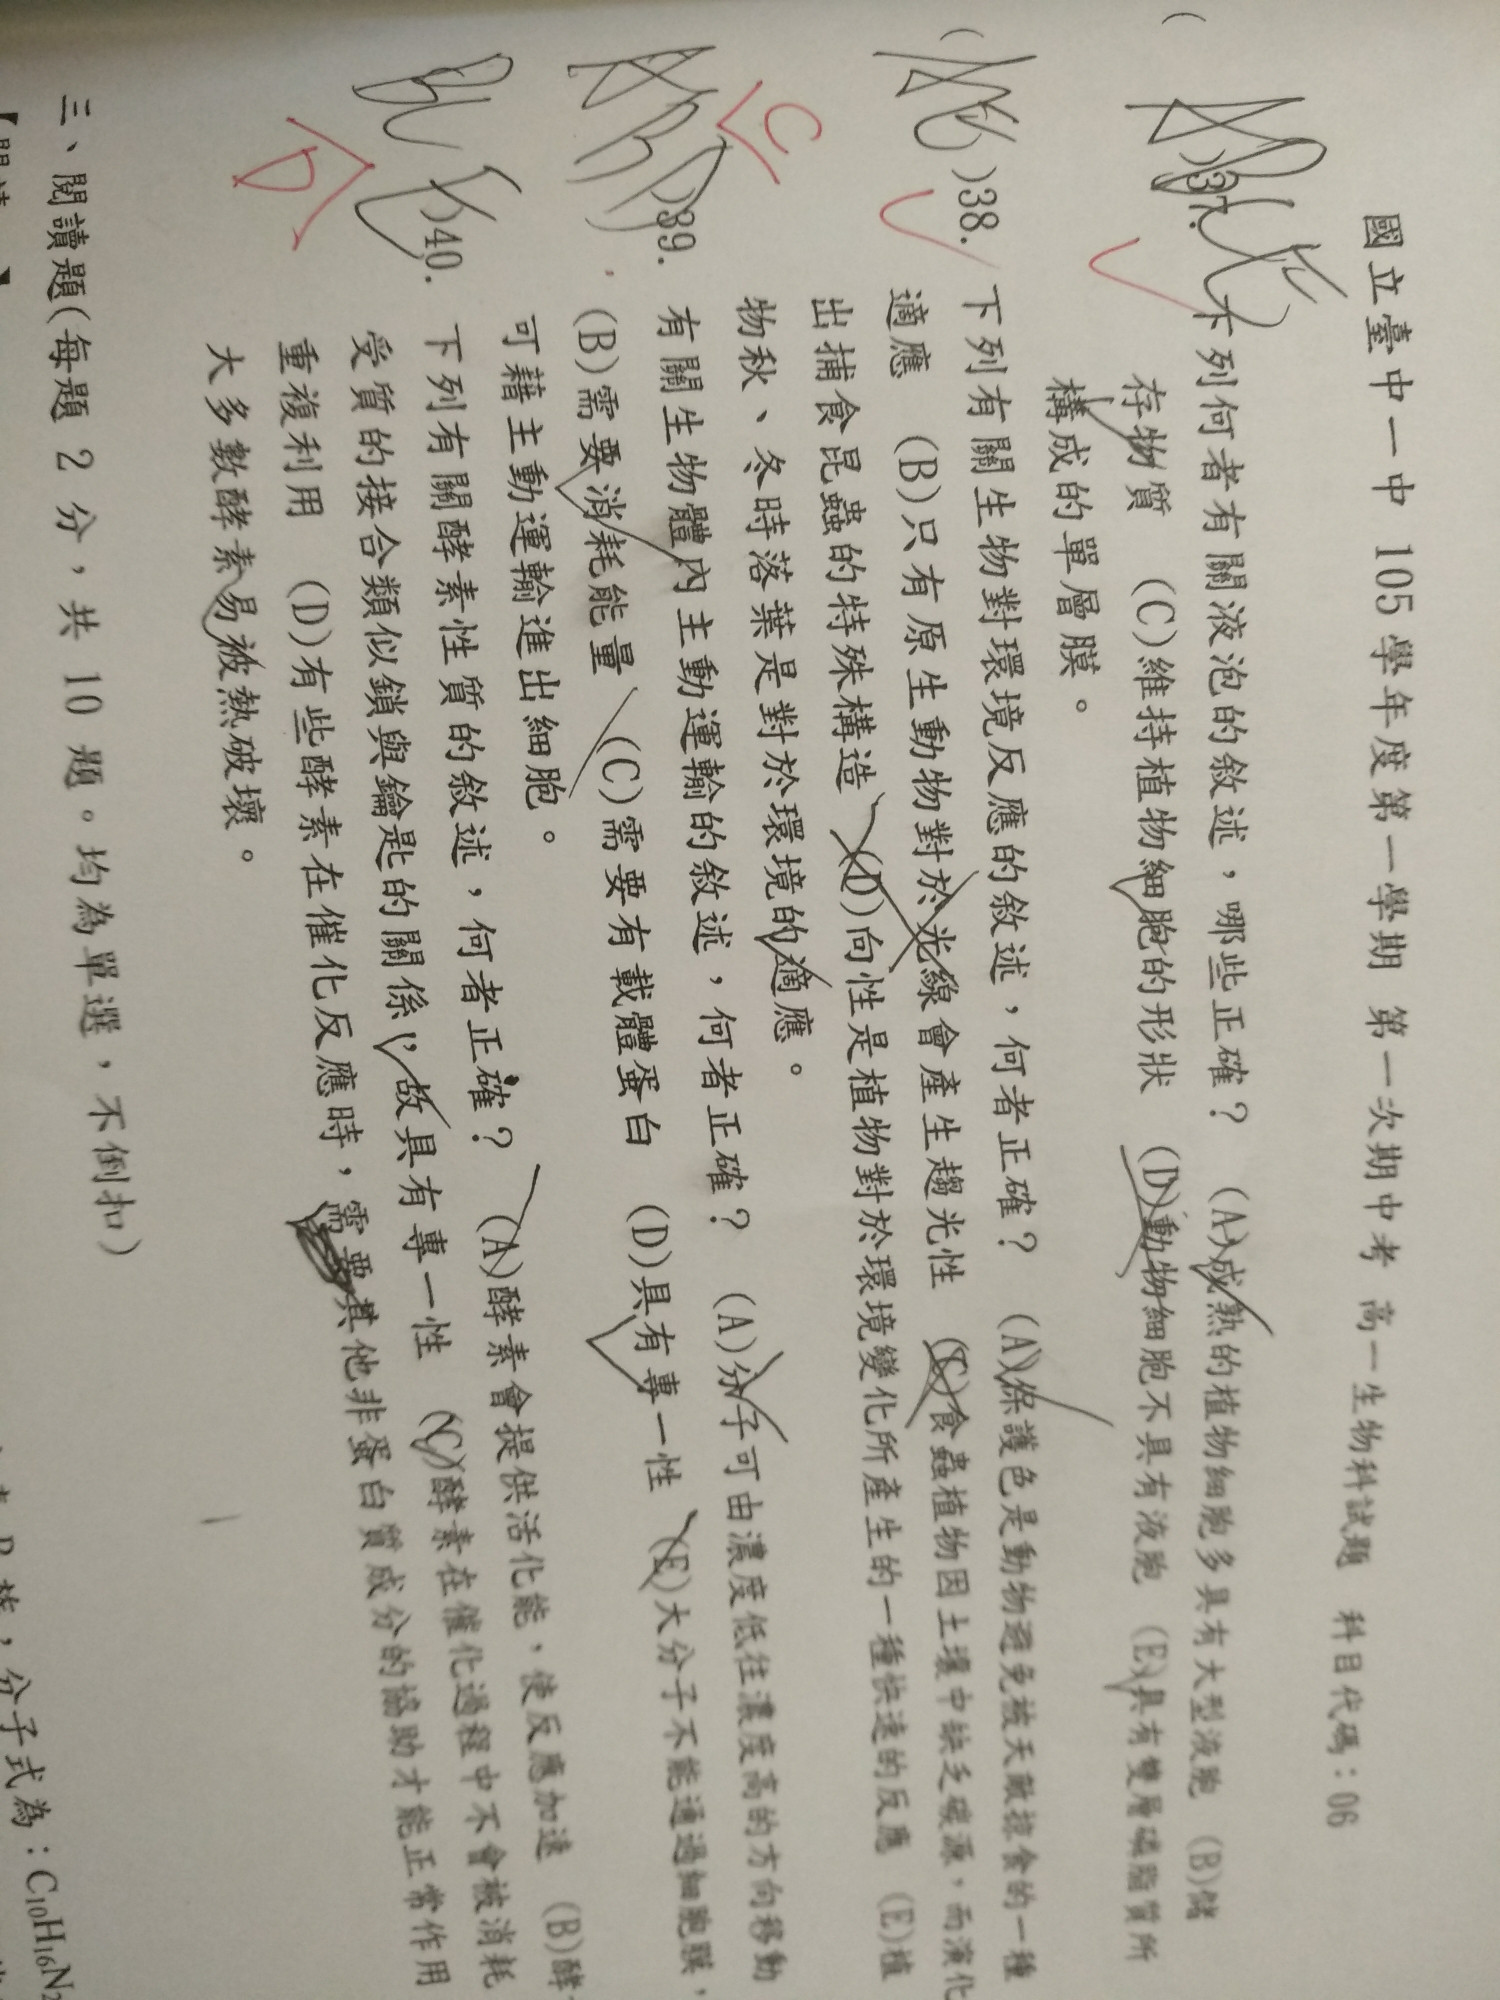 國立臺中一中 105學年度第一學期 第一次期中考 高一生物科試題 科目代碼:06
)37. 下列何者有關液泡的敘述,哪些正確? (A)成熟的植物細胞多具有大型液胞 (B)儲
存物質 (C)維持植物細胞的形狀 (D)動物細胞不具有液胞 (E)具有雙層磷脂質所
構成的單層膜。
)38. 下列有關生物對環境反應的敘述,何者正確? (A)保護色是動物避免被天敵掠食的一種
適應 (B)只有原生動物對於光線會產生趨光性 (C)食蟲植物因土壤中缺乏碳源,而演化
出捕食昆蟲的特殊構造 (D)向性是植物對於環境變化所產生的一種快速的反應 (E)植
物秋、冬時落葉是對於環境的適應。
C
)39. 有關生物體內主動運輸的敘述,何者正確? (A)分子可由濃度低往濃度高的方向移動
(B)需要消耗能量 (C)需要有載體蛋白 (D)具有專一性 (E)大分子不能通過細胞膜,
可藉主動運輸進出細胞。
)40. 下列有關酵素性質的敘述,何者正確? (A)酵素會提供活化能,使反應加速 (B)酵
受質的接合類似鎖與鑰匙的關係,故具有專一性 (C)酵素在催化過程中不會被消耗
重複利用 (D)有些酵素在催化反應時,需要其他非蛋白質成分的協助才能正常作用
大多數酵素易被熱破壞。
D
三、閱讀題(每題 2 分,共 10 題。均為單選,不倒扣)
分子式為:C₁₀H₁₆N₂